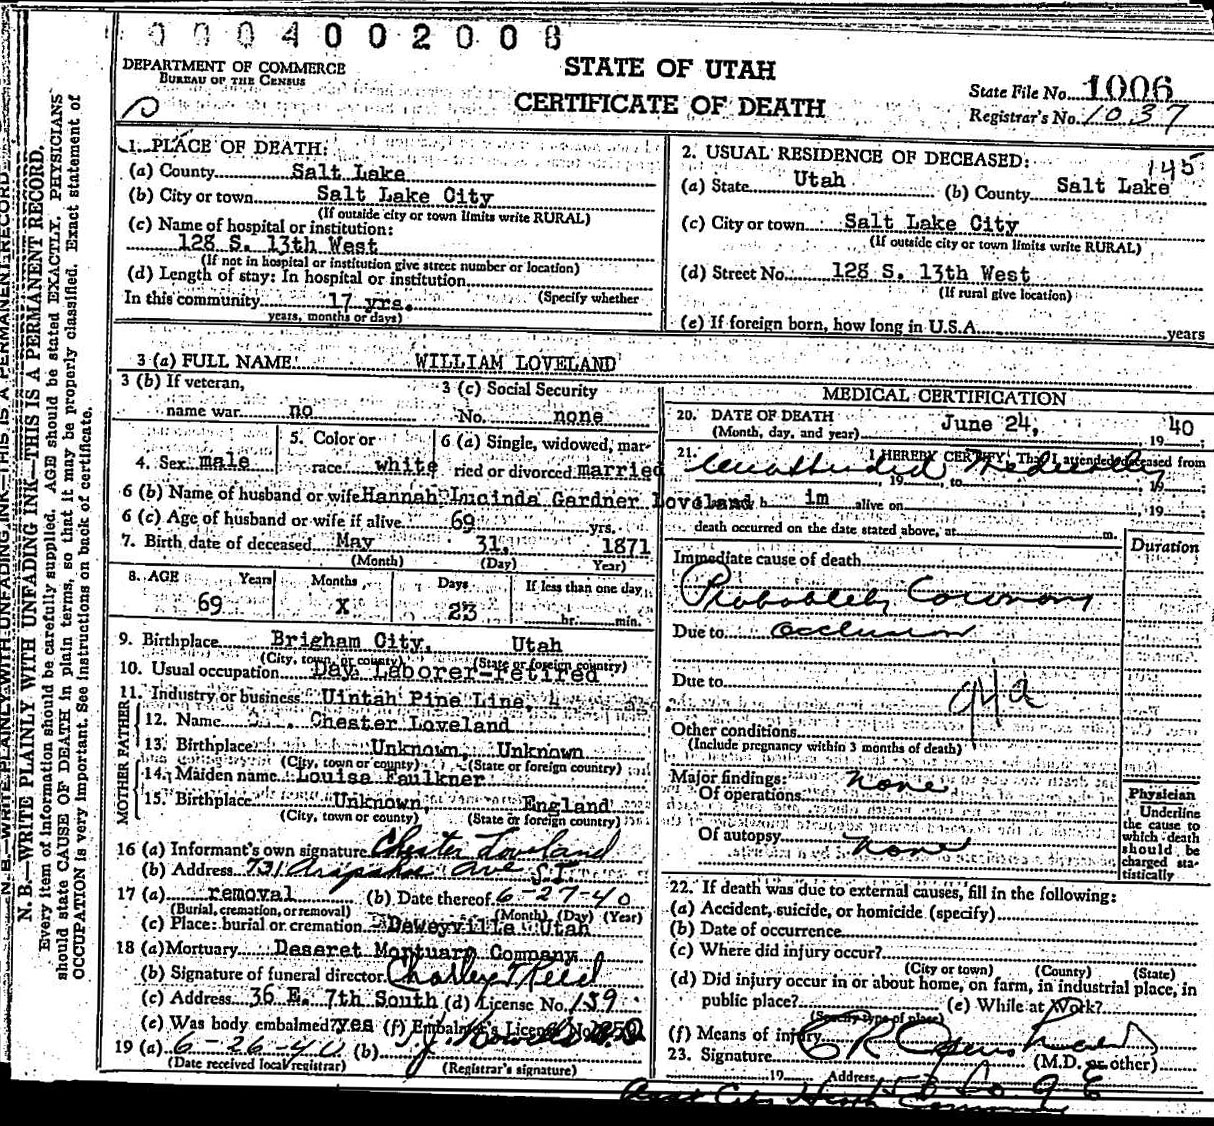 0004002008
DEPARTMENT OF COMMERCE
BUREAU OF THE CENSUS
STATE OF UTAH
CERTIFICATE OF DEATH
State File No. 1006
Registrar's No. 1037
145
N. B.—WRITE PLAINLY WITH UNFADING INK—THIS IS A PERMANENT RECORD.
Every item of information should be carefully supplied. AGE should be stated EXACTLY. PHYSICIANS
should state CAUSE OF DEATH in plain terms, so that it may be properly classified. Exact statement of
OCCUPATION is very important. See instructions on back of certificate.
1. PLACE OF DEATH:
(a) County Salt Lake
(b) City or town Salt Lake City
(If outside city or town limits write RURAL)
(c) Name of hospital or institution:
128 S. 13th West
(If not in hospital or institution give street number or location)
(d) Length of stay: In hospital or institution
In this community 17 yrs. (Specify whether
years, months or days)
2. USUAL RESIDENCE OF DECEASED:
(a) State Utah (b) County Salt Lake
(c) City or town Salt Lake City
(If outside city or town limits write RURAL)
(d) Street No. 128 S. 13th West
(If rural give location)
(e) If foreign born, how long in U.S.A. years
3 (a) FULL NAME WILLIAM LOVELAND
3 (b) If veteran, 3 (c) Social Security
name war no No. none
4. Sex male 5. Color or race white 6 (a) Single, widowed, married or divorced married
6 (b) Name of husband or wife Hannah Lucinda Gardner Loveland
6 (c) Age of husband or wife if alive 69 yrs.
7. Birth date of deceased May 31, 1871
(Month) (Day) (Year)
8. AGE Years Months Days If less than one day
69 X 23 hr. min.
9. Birthplace Brigham City, Utah
(City, town, or county) (State or foreign country)
10. Usual occupation Day Laborer-retired
11. Industry or business Uintah Pipe Line
FATHER
12. Name Chester Loveland
13. Birthplace Unknown, Unknown
(City, town or county) (State or foreign country)
MOTHER
14. Maiden name Louisa Faulkner
15. Birthplace Unknown, England
(City, town or county) (State or foreign country)
16 (a) Informant's own signature Chester Loveland
(b) Address 731 Arapahoe Ave
17 (a) removal (b) Date thereof 6-27-40
(Burial, cremation, or removal) (Month) (Day) (Year)
(c) Place: burial or cremation Deweyville Utah
18 (a) Mortuary Deseret Mortuary Company
(b) Signature of funeral director Charley T Reed
(c) Address 36 E. 7th South (d) License No. 159
(e) Was body embalmed? yes (f) Embalmer's License No.
19 (a) 6-26-40 (b)
(Date received local registrar) (Registrar's signature)
MEDICAL CERTIFICATION
20. DATE OF DEATH June 24, 1940
(Month, day, and year)
21. I HEREBY CERTIFY, That I attended deceased from
unattended Medically
, 19 , to , 19 ;
h im alive on , 19 ;
death occurred on the date stated above, at m.
Duration
Immediate cause of death
Probablely Coronary
Due to occlusion
Due to
94a
Other conditions
(Include pregnancy within 3 months of death)
Major findings:
Of operations none
Of autopsy none
Physician
Underline
the cause to
which death
should be
charged sta-
tistically
22. If death was due to external causes, fill in the following:
(a) Accident, suicide, or homicide (specify)
(b) Date of occurrence
(c) Where did injury occur?
(City or town) (County) (State)
(d) Did injury occur in or about home, on farm, in industrial place, in
public place? (e) While at Work?
(Specify type of place)
(f) Means of injury
23. Signature (M.D. or other)
19 Address